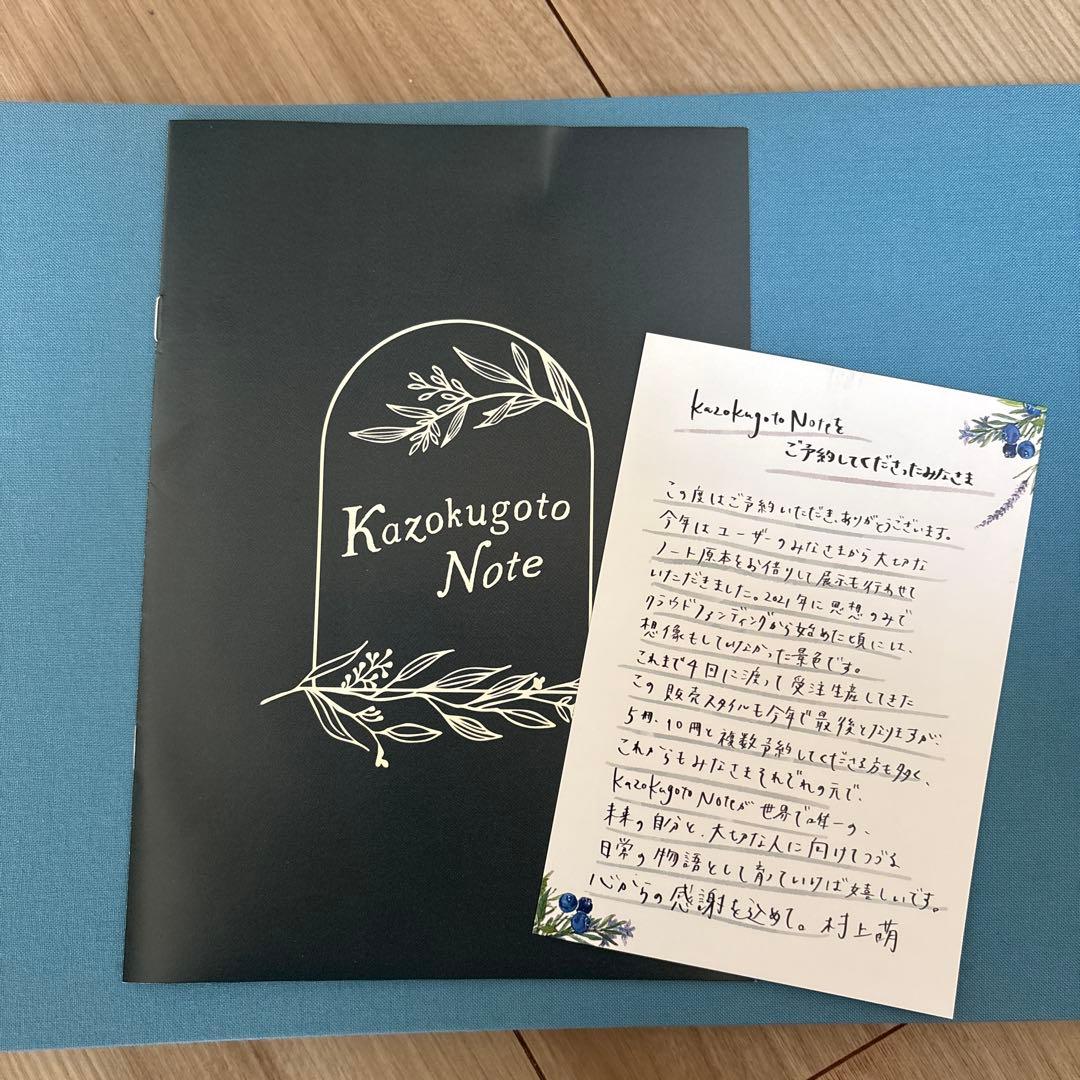 Kazokugoto
Note
Kazokugoto Noteを
ご予約してくださったみなさま
この度はご予約いただき、ありがとうございます。
今年はユーザーのみなさまから大切な
ノート原本をお借りして展示も行わせて
いただきました。2021年に思想のみで
クラウドファンディングから始めた頃には、
想像もしていなかった景色です。
これまで4回に渡って受注生産してきた
この販売スタイルも今年で最後となりますが、
5冊、10冊と複数予約してくださる方も多く、
これからもみなさまそれぞれの元で、
Kazokugoto Noteが世界で唯一の、
未来の自分と、大切な人に向けてつづる
日常の物語として育っていけば嬉しいです。
心からの感謝を込めて。村上萌